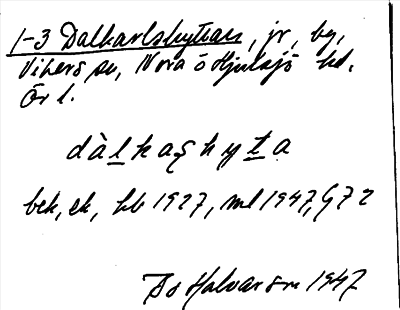 1-3 Dalkarlshyttan, jr, by,
Vikers sn, Nora o Hjulsjö hd,
Ör l.
dàlkaʂhyta
bek, ek, hb 1927, ml 1947, G72
Bo Halvarson 1947